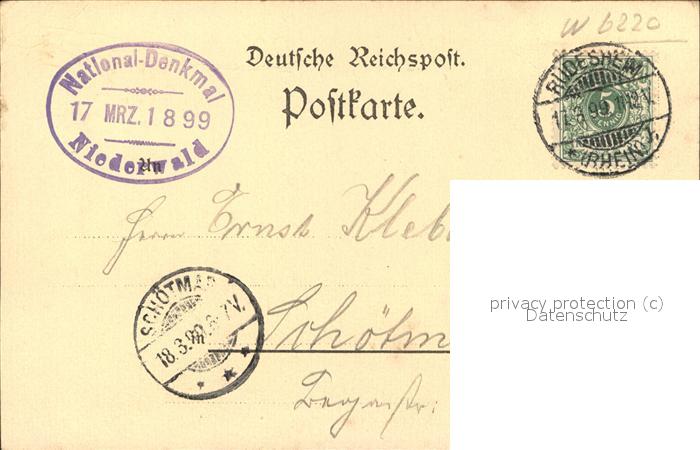 W 6220
Deutsche Reichspost.
Postkarte.
National-Denkmal
17 MRZ. 1899
Niederwald
An
RÜDESHEIM
5
(RHEIN)
Herrn Ernst Kleb
SCHÖTMAR
18.3.99
Schötm
privacy protection (c)
Datenschutz